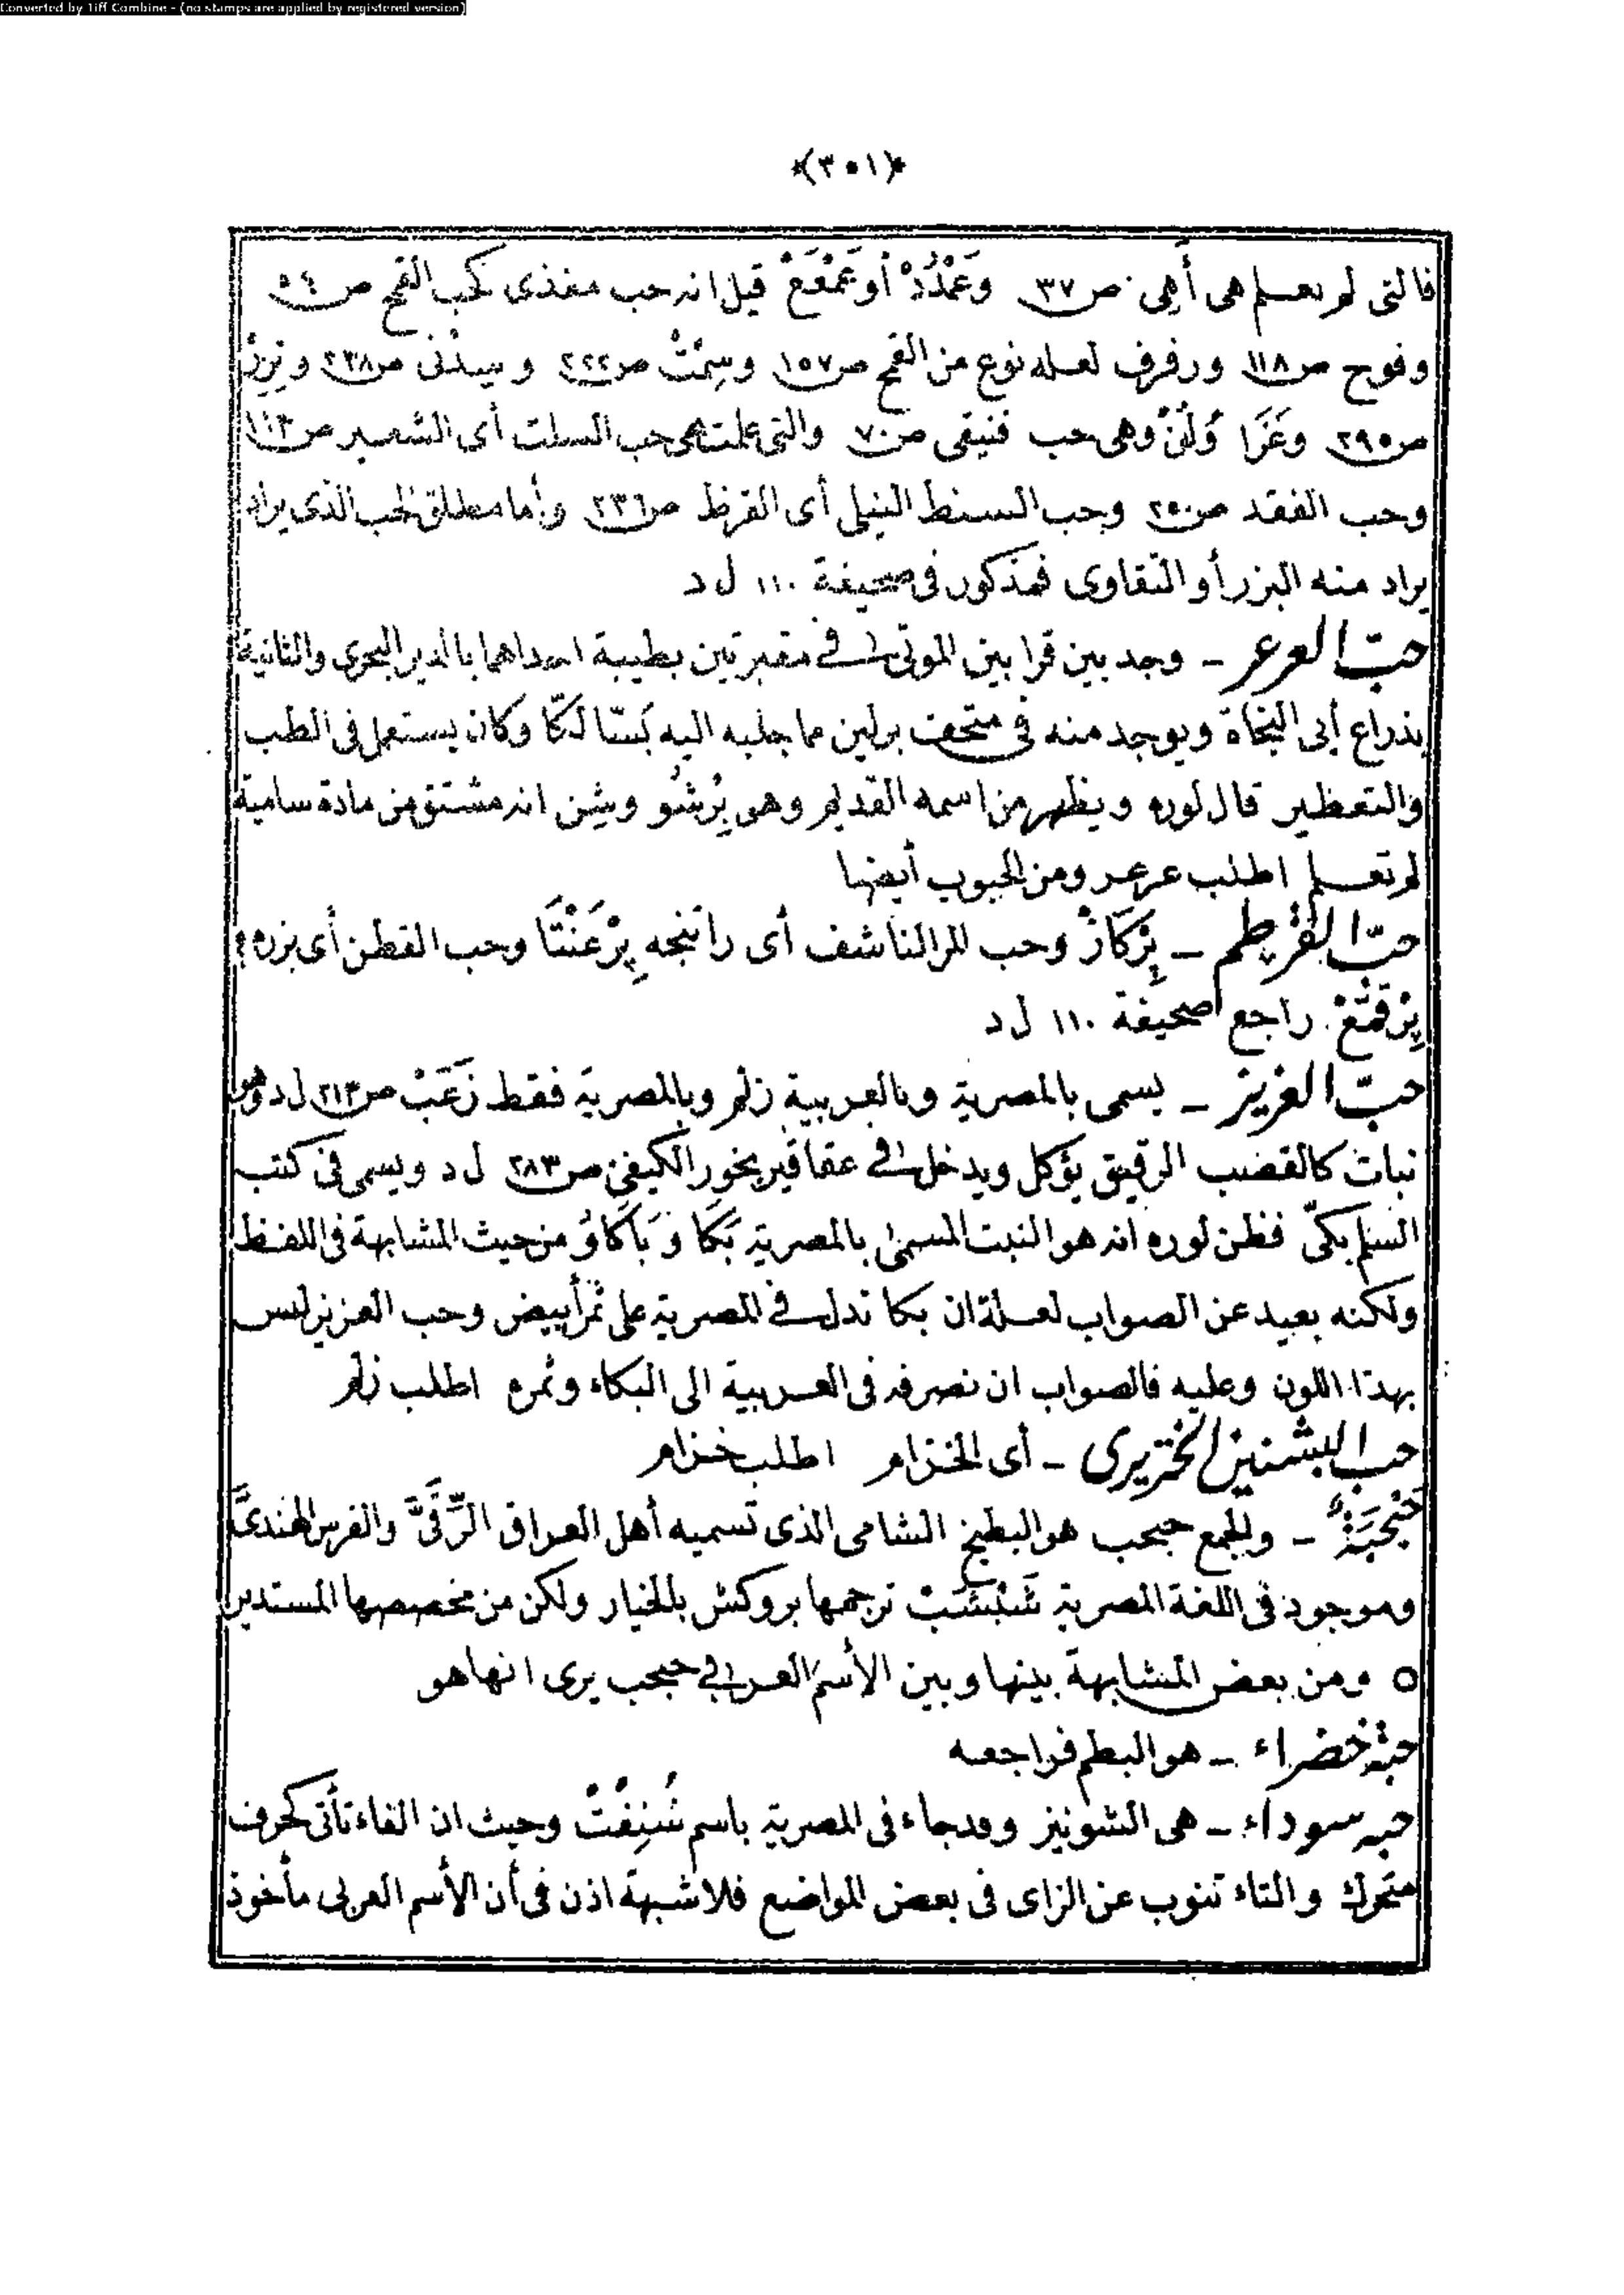 Converted by Tiff Combine - (no stamps are applied by registered version)
﴿٣٠١﴾
فالتى لم تعلم هى أهى ص ٣٧ وَعَمْدُدْ أو عَمْقَعْ قيل انه حب مغذى كحب القمح ص ٥٤
وفوج ص ١١٨ ورفرف لعله نوع من القمح ص ١٥٧ وسِمْتْ ص ٢٢٢ و سيدْنى ص ٢٣٨ و نِيزْ
ص ٢٩٥ وعَنَا وُلُنْ وهى حب فنيقى ص ٧٠ والتى علمت هى حب السلت أى الشعير ص ١١٣
وحب الفقد ص ٢٥٠ وحب السنط النيلى أى القرظ ص ٢٣٦ وأما مطلق الحب الذى يراد
يراد منه البزر أو التقاوى فمذكور فى صحيفة ١١٠ ل د
حبّ العرعر – وجد بين قرابين الموتى فى مقبرتين بطيبة احداهما بالدير البحرى والثانية
بذراع أبى النجاة ويوجد منه فى متحف برلين مما جلبه اليه بَسَّالَكّا وكان يستعمل فى الطب
والتعطير قال لوره ويظهر من اسمه القديم وهى بِرْشُو وبِشِن انه مشتق من مادة سامية
لم تعلم اطلب عرعر ومن الحبوب أيضا
حبّ القرطم – بِرْكَارْ وحب المر الناشف أى راتنجه بِرْعَنْتَا وحب القطن أى بزره؟
بِرْقمْعْ . راجع صحيفة ١١٠ ل د
حبّ العزيز – يسمى بالمصرية وبالعربية زلم وبالمصرية فقط زَعَبْ ص ٢١٣ ل د وهو
نبات كالقضب الرقيق يؤكل ويدخل فى عقاقير بخور الكيفى ص ٢٨٣ ل د ويسمى فى كتب
السلم بكىّ فظن لوره انه هو النبت المسمى بالمصرية بَكَا وَ بَاكَاوُ من حيث المشابهة فى اللفظ
ولكنه بعيد عن الصواب لعلة ان بكا تدل فى المصرية على ثمر أبيض وحب العزيز ليس
بهذا اللون وعليه فالصواب ان نصرفه فى العربية الى البكاء وثمره اطلب زلم
حب البشنين الخنزيرى – أى الخزام اطلب خزام
حَبْحَبَةٌ – والجمع حبحب هو البطيخ الشامى الذى تسميه أهل العراق الرَّقىّ والفرس الهندىّ
وموجود فى اللغة المصرية شَبْشَبْ ترجمها بروكش بالخيار ولكن من مخصصها المستدير
O ومن بعض المشابهة بينها وبين الأسم العربى حبحب يرى انها هو
حبة خضراء – هو البطم فراجعه
حبه سوداء – هى الشونيز وقد جاء فى المصرية باسم شُنِفْتْ وحيث ان الفاء تأتى كحرف
متحرك والتاء تنوب عن الزاى فى بعض المواضع فلا شبهة اذن فى أن الأسم العربى مأخوذ